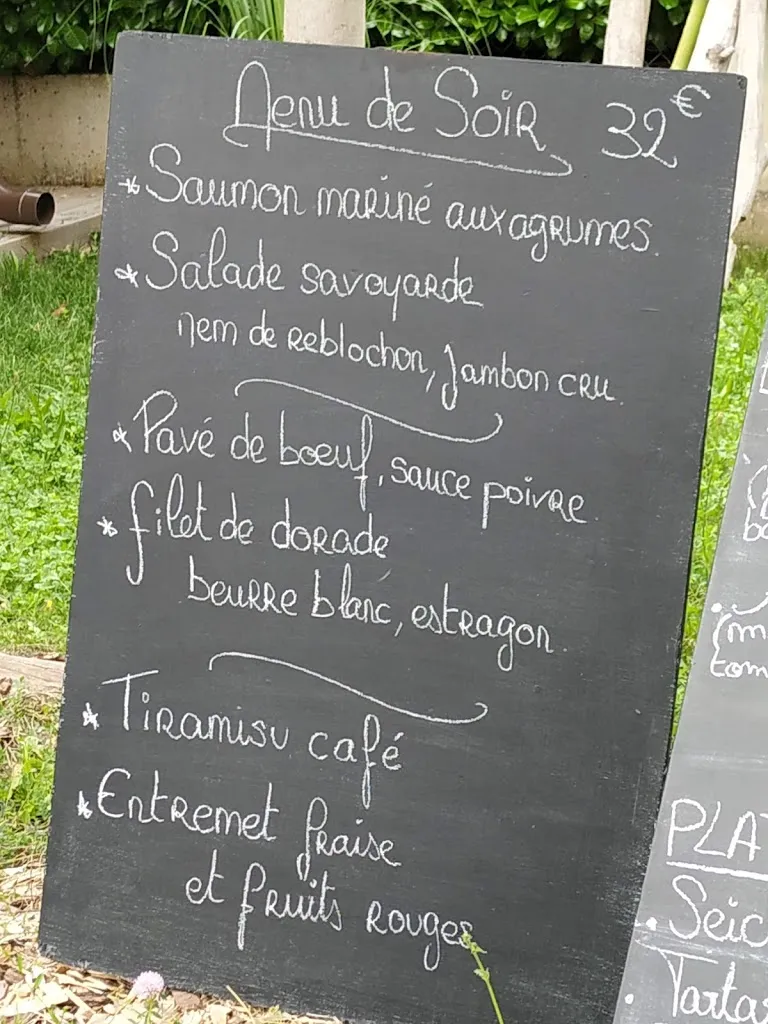 Menu de Soir 32€
* Saumon mariné aux agrumes.
* Salade savoyarde
nem de reblochon, jambon cru.
* Pavé de boeuf, sauce poivre.
* filet de dorade
beurre blanc, estragon.
* Tiramisu café
* Entremet fraise
et fruits rouges
PLA
. Seic
. Tarta